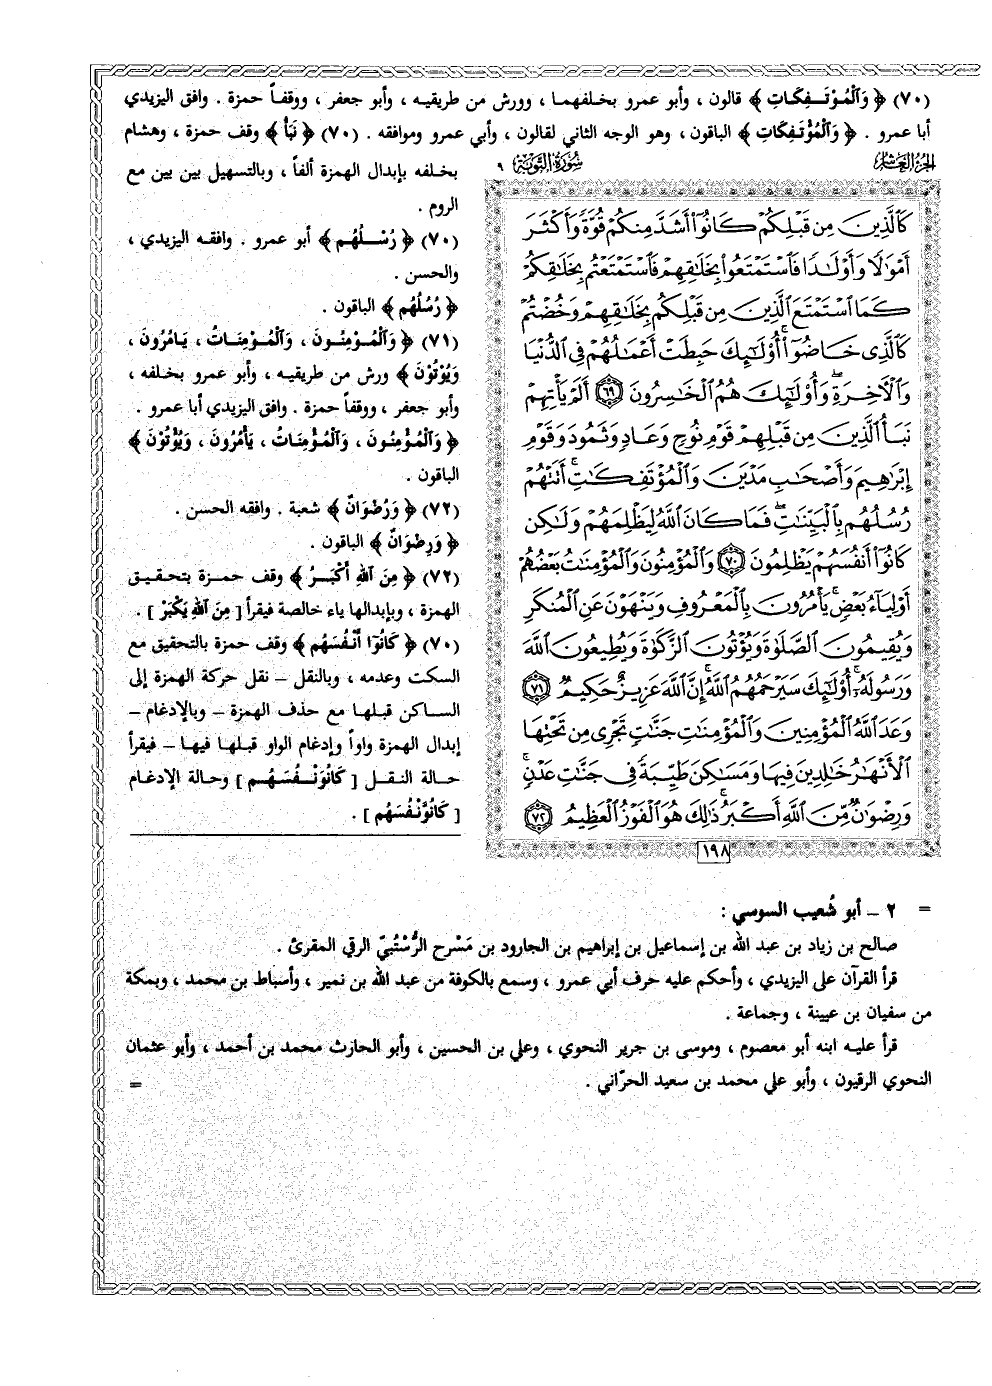 (٧٠) ﴿ وَالْمُوْتَـفِكَاتِ ﴾ قالون ، وأبو عمرو بخلفهما ، وورش من طريقيه ، وأبو جعفر ، ووقفاً حمزة . وافق اليزيدي
أبا عمرو . ﴿ وَالْمُؤْتَفِكَاتِ ﴾ الباقون ، وهو الوجه الثاني لقالون ، وأبي عمرو وموافقه . (٧٠) ﴿ نَبَأُ ﴾ وقف حمزة ، وهشام
بخلفه بإبدال الهمزة ألفاً ، وبالتسهيل بين بين مع
الروم .
(٧٠) ﴿ رُسْـلُهُم ﴾ أبو عمرو . وافقـه اليزيدي ،
والحسن .
﴿ رُسُلُهُم ﴾ الباقون .
(٧١) ﴿ وَالْمُوْمِنُـونَ ، وَالْمُـوْمِنَـاتُ ، يَـامُرُونَ ،
وَيُوْتُوْنَ ﴾ ورش من طريقيه ، وأبو عمرو بخلفه ،
وأبو جعفر ، ووقفاً حمزة . وافق اليزيدي أبا عمرو .
﴿ وَالْمُـؤْمِنُـونَ ، وَالْمُـؤْمِنَـاتُ ، يَأمُرُونَ ، وَيُؤْتُوْنَ ﴾
الباقون .
(٧٢) ﴿ وَرُضْوَانٌ ﴾ شعبة . وافقه الحسن .
﴿ وَرِضْوَانٌ ﴾ الباقون .
(٧٢) ﴿ مِنَ اللهِ أَكْبَـرُ ﴾ وقف حمـزة بتحقيـق
الهمزة ، وبإبدالها ياء خالصة فيقرأ [ مِنَ اللهِ يَكْبَرْ ] .
(٧٠) ﴿ كَانُوٓا أَنْـفُسَهُم ﴾ وقف حمزة بالتحقيق مع
السكت وعدمه ، وبالنقل – نقل حركة الهمزة إلى
الساكن قبلها مع حذف الهمزة – وبالإدغام –
إبدال الهمزة واواً وإدغام الواو قبلـها فيها – فيقرأ
حالة النقـل [ كَانُوَنْـفُسَهُـم ] وحالة الإدغام
[ كَانُوَّنْـفُسَهُم ] .
الجزء العاشر
سُورَةُ التَّوبَةِ ٩
كَٱلَّذِينَ مِن قَبْلِكُمْ كَانُوٓا۟ أَشَدَّ مِنكُمْ قُوَّةً وَأَكْثَرَ
أَمْوَٰلًا وَأَوْلَـٰدًا فَٱسْتَمْتَعُوا۟ بِخَلَـٰقِهِمْ فَٱسْتَمْتَعْتُم بِخَلَـٰقِكُمْ
كَمَا ٱسْتَمْتَعَ ٱلَّذِينَ مِن قَبْلِكُم بِخَلَـٰقِهِمْ وَخُضْتُمْ
كَٱلَّذِى خَاضُوٓا۟ ۚ أُو۟لَـٰٓئِكَ حَبِطَتْ أَعْمَـٰلُهُمْ فِى ٱلدُّنْيَا
وَٱلْـَٔاخِرَةِ ۖ وَأُو۟لَـٰٓئِكَ هُمُ ٱلْخَـٰسِرُونَ ﴿٦٩﴾ أَلَمْ يَأْتِهِمْ
نَبَأُ ٱلَّذِينَ مِن قَبْلِهِمْ قَوْمِ نُوحٍ وَعَادٍ وَثَمُودَ وَقَوْمِ
إِبْرَٰهِيمَ وَأَصْحَـٰبِ مَدْيَنَ وَٱلْمُؤْتَفِكَـٰتِ ۚ أَتَتْهُمْ
رُسُلُهُم بِٱلْبَيِّنَـٰتِ ۖ فَمَا كَانَ ٱللَّهُ لِيَظْلِمَهُمْ وَلَـٰكِن
كَانُوٓا۟ أَنفُسَهُمْ يَظْلِمُونَ ﴿٧٠﴾ وَٱلْمُؤْمِنُونَ وَٱلْمُؤْمِنَـٰتُ بَعْضُهُمْ
أَوْلِيَآءُ بَعْضٍ ۚ يَأْمُرُونَ بِٱلْمَعْرُوفِ وَيَنْهَوْنَ عَنِ ٱلْمُنكَرِ
وَيُقِيمُونَ ٱلصَّلَوٰةَ وَيُؤْتُونَ ٱلزَّكَوٰةَ وَيُطِيعُونَ ٱللَّهَ
وَرَسُولَهُۥٓ ۚ أُو۟لَـٰٓئِكَ سَيَرْحَمُهُمُ ٱللَّهُ ۗ إِنَّ ٱللَّهَ عَزِيزٌ حَكِيمٌ ﴿٧١﴾
وَعَدَ ٱللَّهُ ٱلْمُؤْمِنِينَ وَٱلْمُؤْمِنَـٰتِ جَنَّـٰتٍ تَجْرِى مِن تَحْتِهَا
ٱلْأَنْهَـٰرُ خَـٰلِدِينَ فِيهَا وَمَسَـٰكِنَ طَيِّبَةً فِى جَنَّـٰتِ عَدْنٍ ۚ
وَرِضْوَٰنٌ مِّنَ ٱللَّهِ أَكْبَرُ ۚ ذَٰلِكَ هُوَ ٱلْفَوْزُ ٱلْعَظِيمُ ﴿٧٢﴾
١٩٨
= ٢ – أبو شُعيب السوسي :
صالح بن زياد بن عبد الله بن إسماعيل بن إبراهيم بن الجارود بن مَسْرح الرُّسْتُبيّ الرقي المقرئ .
قرأ القرآن على اليزيدي ، وأحكم عليه حرف أبي عمرو ، وسمع بالكوفة من عبد الله بن نمير ، وأسباط بن محمد ، وبمكة
من سفيان بن عيينة ، وجماعة .
قرأ عليه ابنه أبو معصوم ، وموسى بن جرير النحوي ، وعلي بن الحسين ، وأبو الحارث محمد بن أحمد ، وأبو عثمان
النحوي الرقيون ، وأبو علي محمد بن سعيد الحرّاني .
=